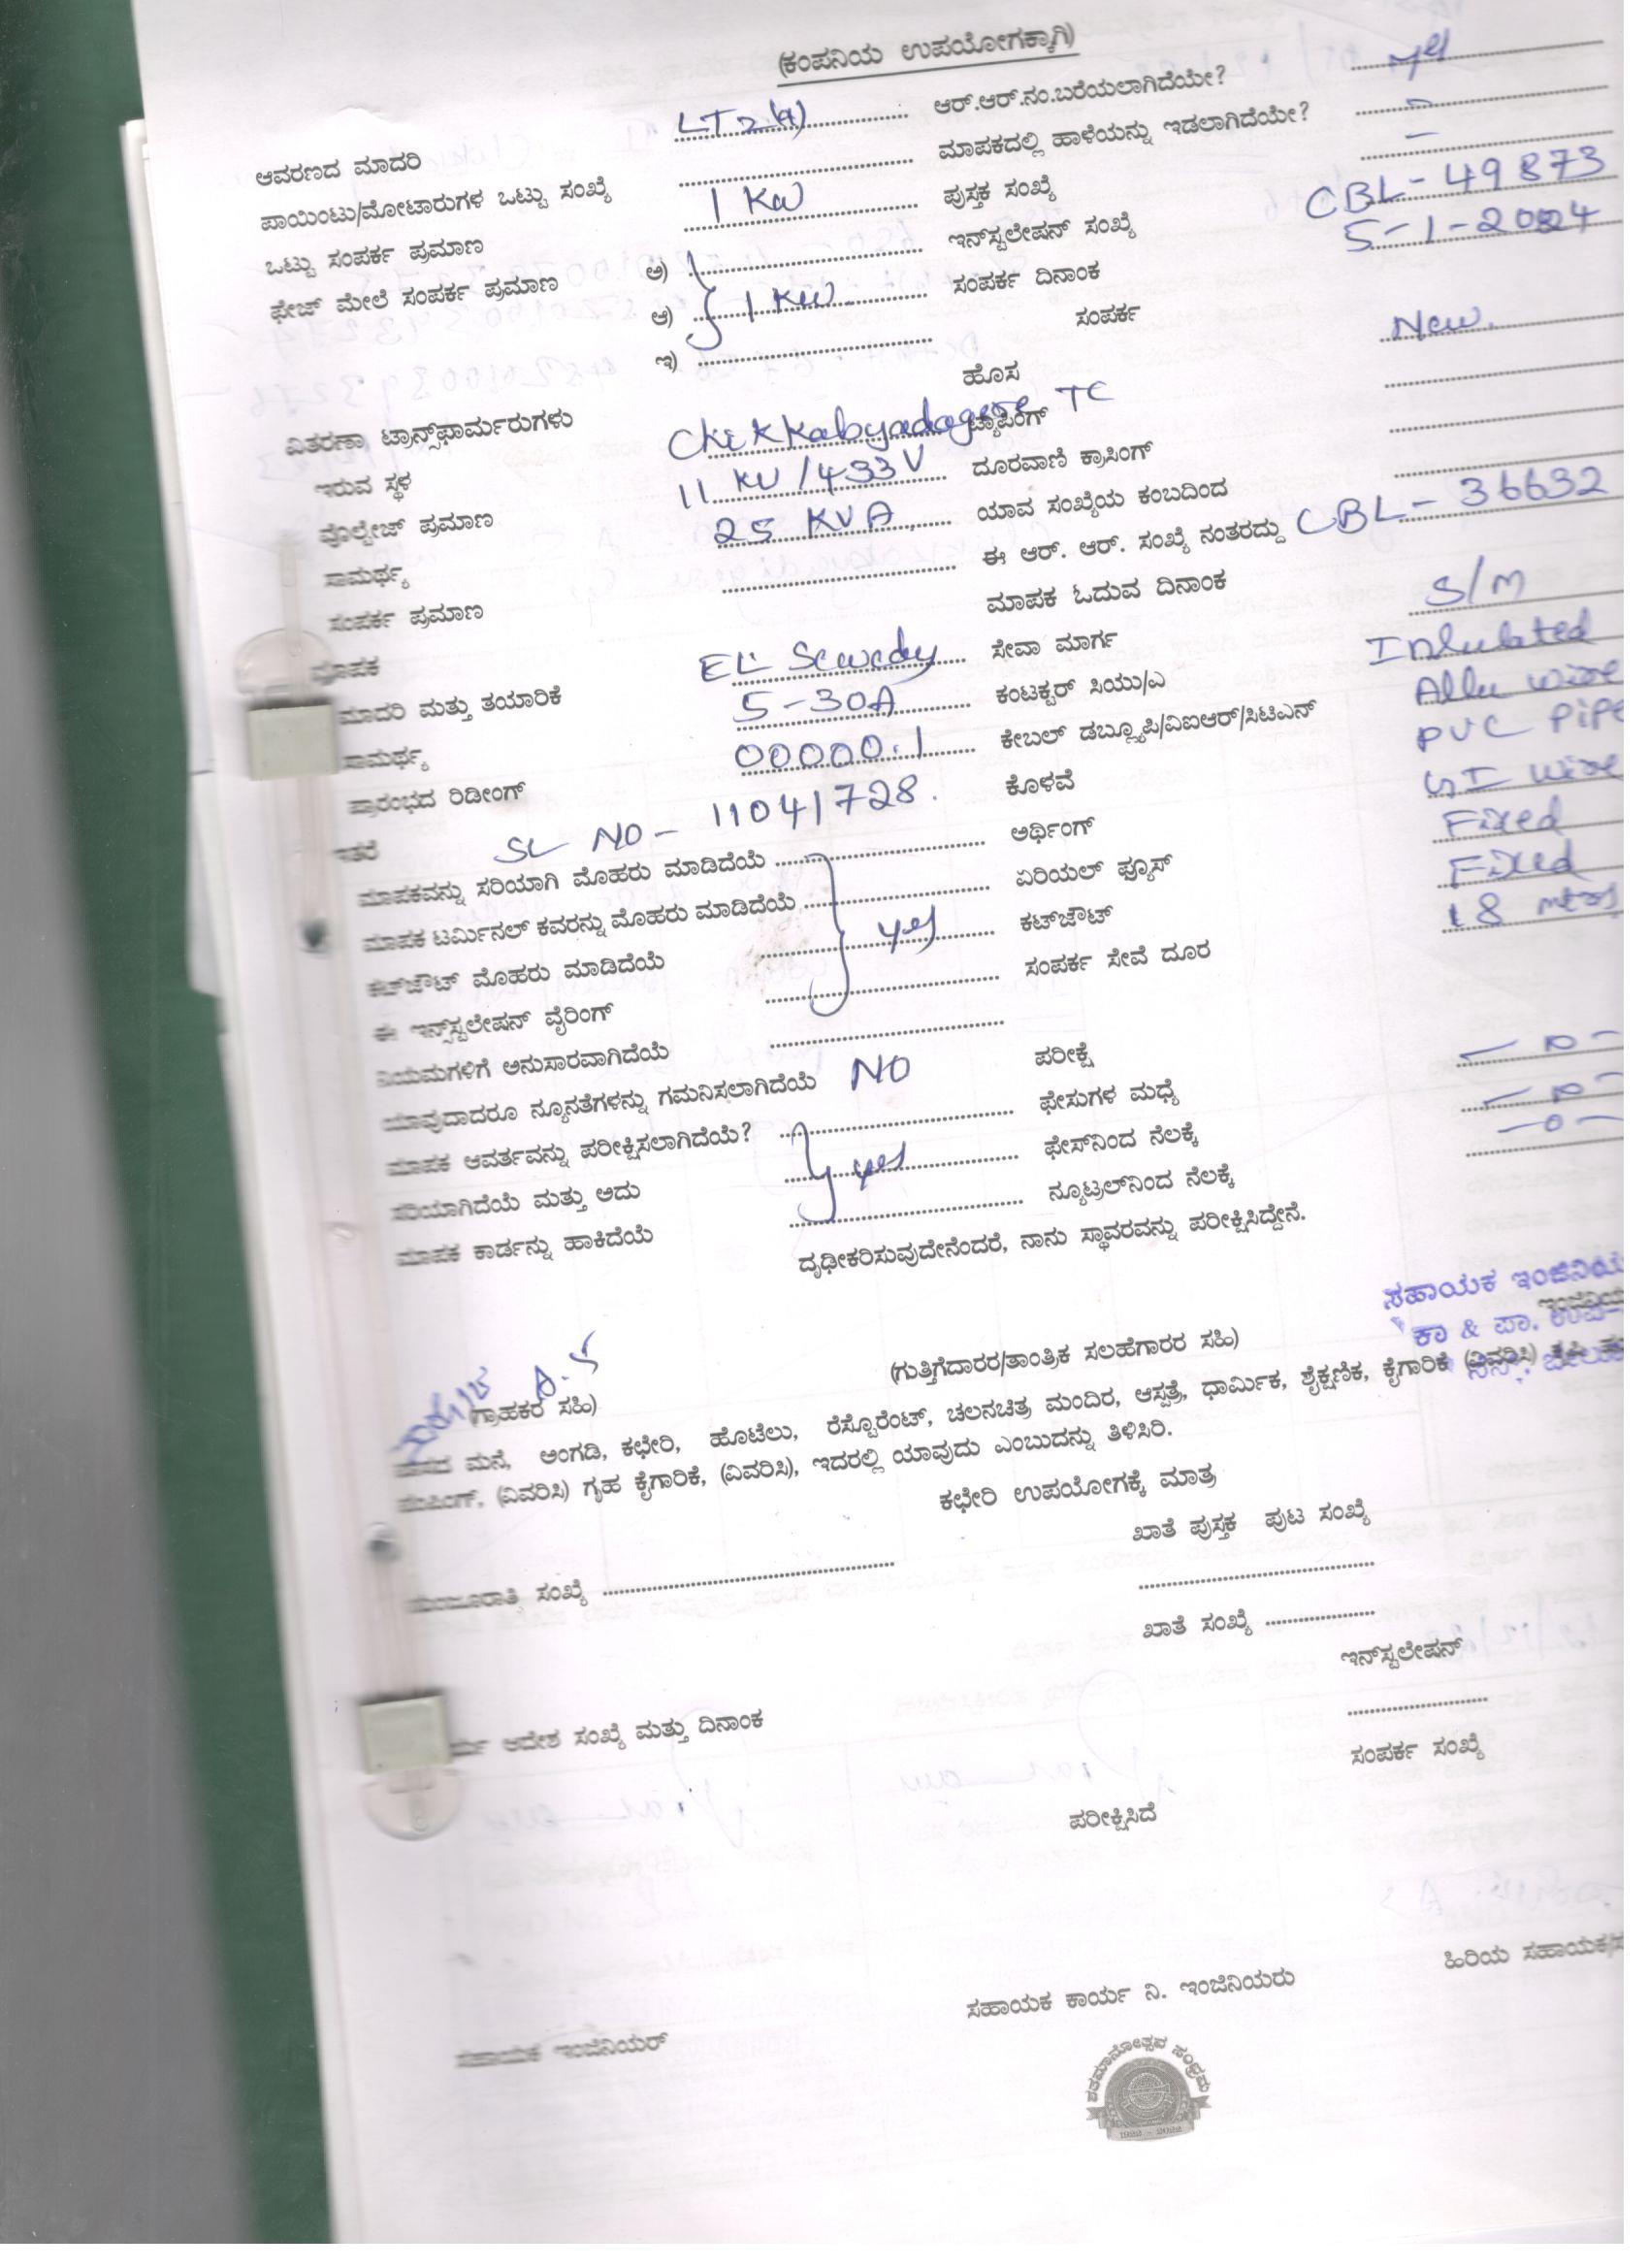 (ಕಂಪನಿಯ ಉಪಯೋಗಕ್ಕಾಗಿ)
ಆವರಣದ ಮಾದರಿ LT 2 (a) ಆರ್.ಆರ್.ನಂ.ಬರೆಯಲಾಗಿದೆಯೇ? yes
ಪಾಯಿಂಟು/ಮೋಟಾರುಗಳ ಒಟ್ಟು ಸಂಖ್ಯೆ ಮಾಪಕದಲ್ಲಿ ಹಾಳೆಯನ್ನು ಇಡಲಾಗಿದೆಯೇ? –
ಒಟ್ಟು ಸಂಪರ್ಕ ಪ್ರಮಾಣ 1 KW ಪುಸ್ತಕ ಸಂಖ್ಯೆ –
ಫೇಜ್ ಮೇಲೆ ಸಂಪರ್ಕ ಪ್ರಮಾಣ ಅ) ಇನ್‌ಸ್ಟಲೇಷನ್ ಸಂಖ್ಯೆ CBL-49873
ಆ) 1 KW ಸಂಪರ್ಕ ದಿನಾಂಕ 5-1-2024
ಇ) ಸಂಪರ್ಕ
ಹೊಸ New
ವಿತರಣಾ ಟ್ರಾನ್ಸ್‌ಫಾರ್ಮರುಗಳು
ಇರುವ ಸ್ಥಳ Chikkabyadagere TC ಟ್ಯಾಪಿಂಗ್
ವೊಲ್ಟೇಜ್ ಪ್ರಮಾಣ 11 KV / 433 V ದೂರವಾಣಿ ಕ್ರಾಸಿಂಗ್
ಸಾಮರ್ಥ್ಯ 25 KVA ಯಾವ ಸಂಖ್ಯೆಯ ಕಂಬದಿಂದ
ಸಂಪರ್ಕ ಪ್ರಮಾಣ ಈ ಆರ್. ಆರ್. ಸಂಖ್ಯೆ ನಂತರದ್ದು CBL-36632
ಮಾಪಕ ಮಾಪಕ ಓದುವ ದಿನಾಂಕ
ಮಾದರಿ ಮತ್ತು ತಯಾರಿಕೆ EL Sewedy ಸೇವಾ ಮಾರ್ಗ S/M
ಸಾಮರ್ಥ್ಯ 5-30A ಕಂಟಕ್ಟರ್ ಸಿಯು/ಎ Insulated
ಪ್ರಾರಂಭದ ರಿಡೀಂಗ್ 00000.1 ಕೇಬಲ್ ಡಬ್ಲ್ಯೂಪಿ/ವಿಐಆರ್/ಸಿಟಿಎನ್ Allu wire
ಇತರೆ SL NO - 11041728. ಕೊಳವೆ PVC PiPe
ಮಾಪಕವನ್ನು ಸರಿಯಾಗಿ ಮೊಹರು ಮಾಡಿದೆಯೆ ಅರ್ಥಿಂಗ್ GI wire
ಮಾಪಕ ಟರ್ಮಿನಲ್ ಕವರನ್ನು ಮೊಹರು ಮಾಡಿದೆಯೆ ಏರಿಯಲ್ ಫ್ಯೂಸ್ Fixed
ಕಟ್‌ಔಟ್ ಮೊಹರು ಮಾಡಿದೆಯೆ yes ಕಟ್‌ಔಟ್ Fixed
ಈ ಇನ್ಸ್‌ಸ್ಟಲೇಷನ್ ವೈರಿಂಗ್ ಸಂಪರ್ಕ ಸೇವೆ ದೂರ 18 mtrs
ನಿಯಮಗಳಿಗೆ ಅನುಸಾರವಾಗಿದೆಯೆ
ಯಾವುದಾದರೂ ನ್ಯೂನತೆಗಳನ್ನು ಗಮನಿಸಲಾಗಿದೆಯೆ NO ಪರೀಕ್ಷೆ
ಮಾಪಕ ಆವರ್ತವನ್ನು ಪರೀಕ್ಷಿಸಲಾಗಿದೆಯೆ? ಫೇಸುಗಳ ಮಧ್ಯೆ – 0 –
ಸರಿಯಾಗಿದೆಯೆ ಮತ್ತು ಅದು yes ಫೇಸ್‌ನಿಂದ ನೆಲಕ್ಕೆ – 0 –
ಮಾಪಕ ಕಾರ್ಡನ್ನು ಹಾಕಿದೆಯೆ ನ್ಯೂಟ್ರಲ್‌ನಿಂದ ನೆಲಕ್ಕೆ – 0 –
ದೃಢೀಕರಿಸುವುದೇನೆಂದರೆ, ನಾನು ಸ್ಥಾವರವನ್ನು ಪರೀಕ್ಷಿಸಿದ್ದೇನೆ.
ಸಹಾಯಕ ಇಂಜಿನಿಯ
ಕಾ & ಪಾ. ಉಪ
(ಗ್ರಾಹಕರ ಸಹಿ) (ಗುತ್ತಿಗೆದಾರರ/ತಾಂತ್ರಿಕ ಸಲಹೆಗಾರರ ಸಹಿ)
ವಾಸದ ಮನೆ, ಅಂಗಡಿ, ಕಛೇರಿ, ಹೊಟೆಲು, ರೆಸ್ಟೊರೆಂಟ್, ಚಲನಚಿತ್ರ ಮಂದಿರ, ಆಸ್ಪತ್ರೆ, ಧಾರ್ಮಿಕ, ಶೈಕ್ಷಣಿಕ, ಕೈಗಾರಿಕೆ (ವಿವರಿಸಿ)
ಪಂಪಿಂಗ್, (ವಿವರಿಸಿ) ಗೃಹ ಕೈಗಾರಿಕೆ, (ವಿವರಿಸಿ), ಇದರಲ್ಲಿ ಯಾವುದು ಎಂಬುದನ್ನು ತಿಳಿಸಿರಿ.
ಕಛೇರಿ ಉಪಯೋಗಕ್ಕೆ ಮಾತ್ರ
ಖಾತೆ ಪುಸ್ತಕ ಪುಟ ಸಂಖ್ಯೆ
ಮಂಜೂರಾತಿ ಸಂಖ್ಯೆ
ಖಾತೆ ಸಂಖ್ಯೆ
ಇನ್‌ಸ್ಟಲೇಷನ್
ಆದೇಶ ಸಂಖ್ಯೆ ಮತ್ತು ದಿನಾಂಕ
ಸಂಪರ್ಕ ಸಂಖ್ಯೆ
ಪರೀಕ್ಷಿಸಿದೆ
ಸಹಾಯಕ ಇಂಜಿನಿಯರ್ ಸಹಾಯಕ ಕಾರ್ಯ ನಿ. ಇಂಜಿನಿಯರು ಹಿರಿಯ ಸಹಾಯಕ/ಸ
ಶತಮಾನೋತ್ಸವ ಸಂಭ್ರಮ